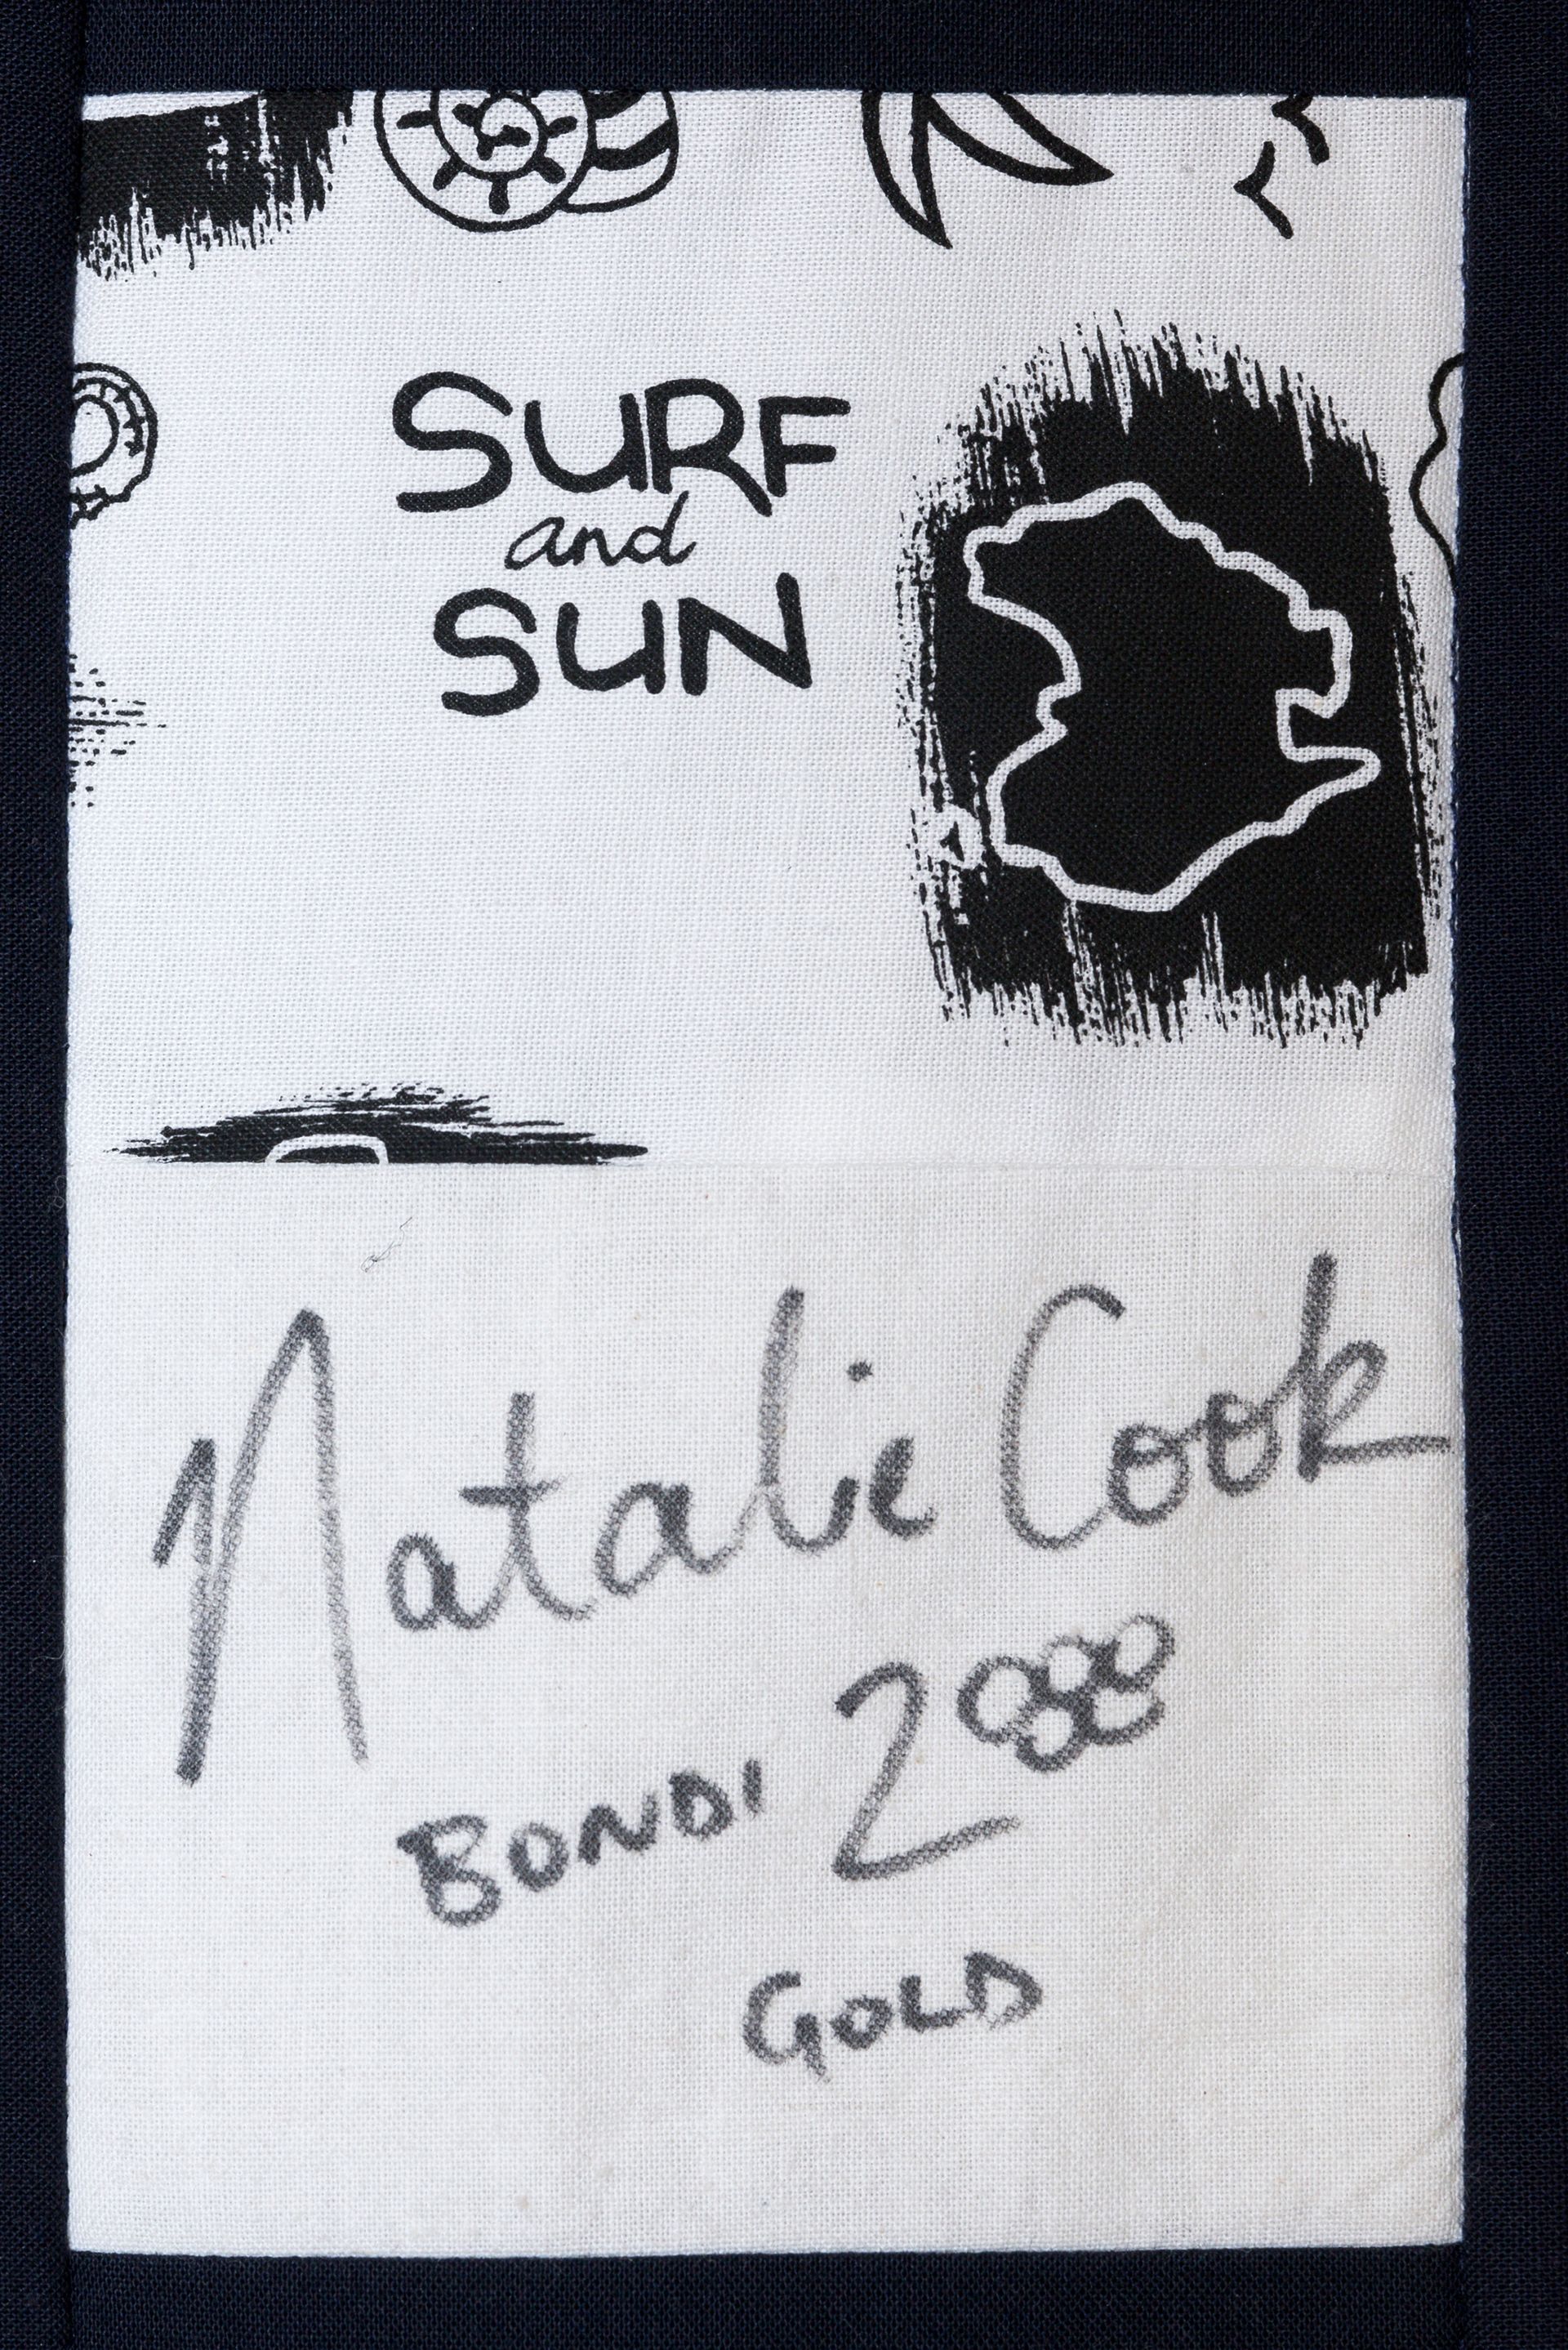 SURF
and
SUN
Natalie Cook
BONDI 2000
GOLD